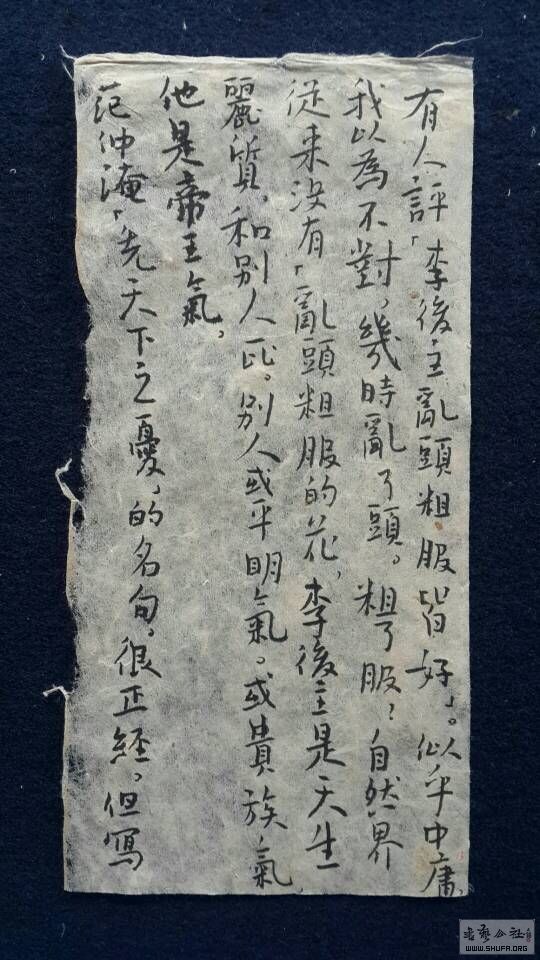 有人評「李後主亂頭粗服皆好」。似乎中庸,
我以為不對,幾時亂了頭。粗了服?自然界
從来没有「亂頭粗服的花,李後主是天生
麗質,和別人比。別人或平明氣。或貴族氣
他是帝王氣。
范仲淹「先天下之憂」的名句。很正經。但寫
WWW.SHUFA.ORG